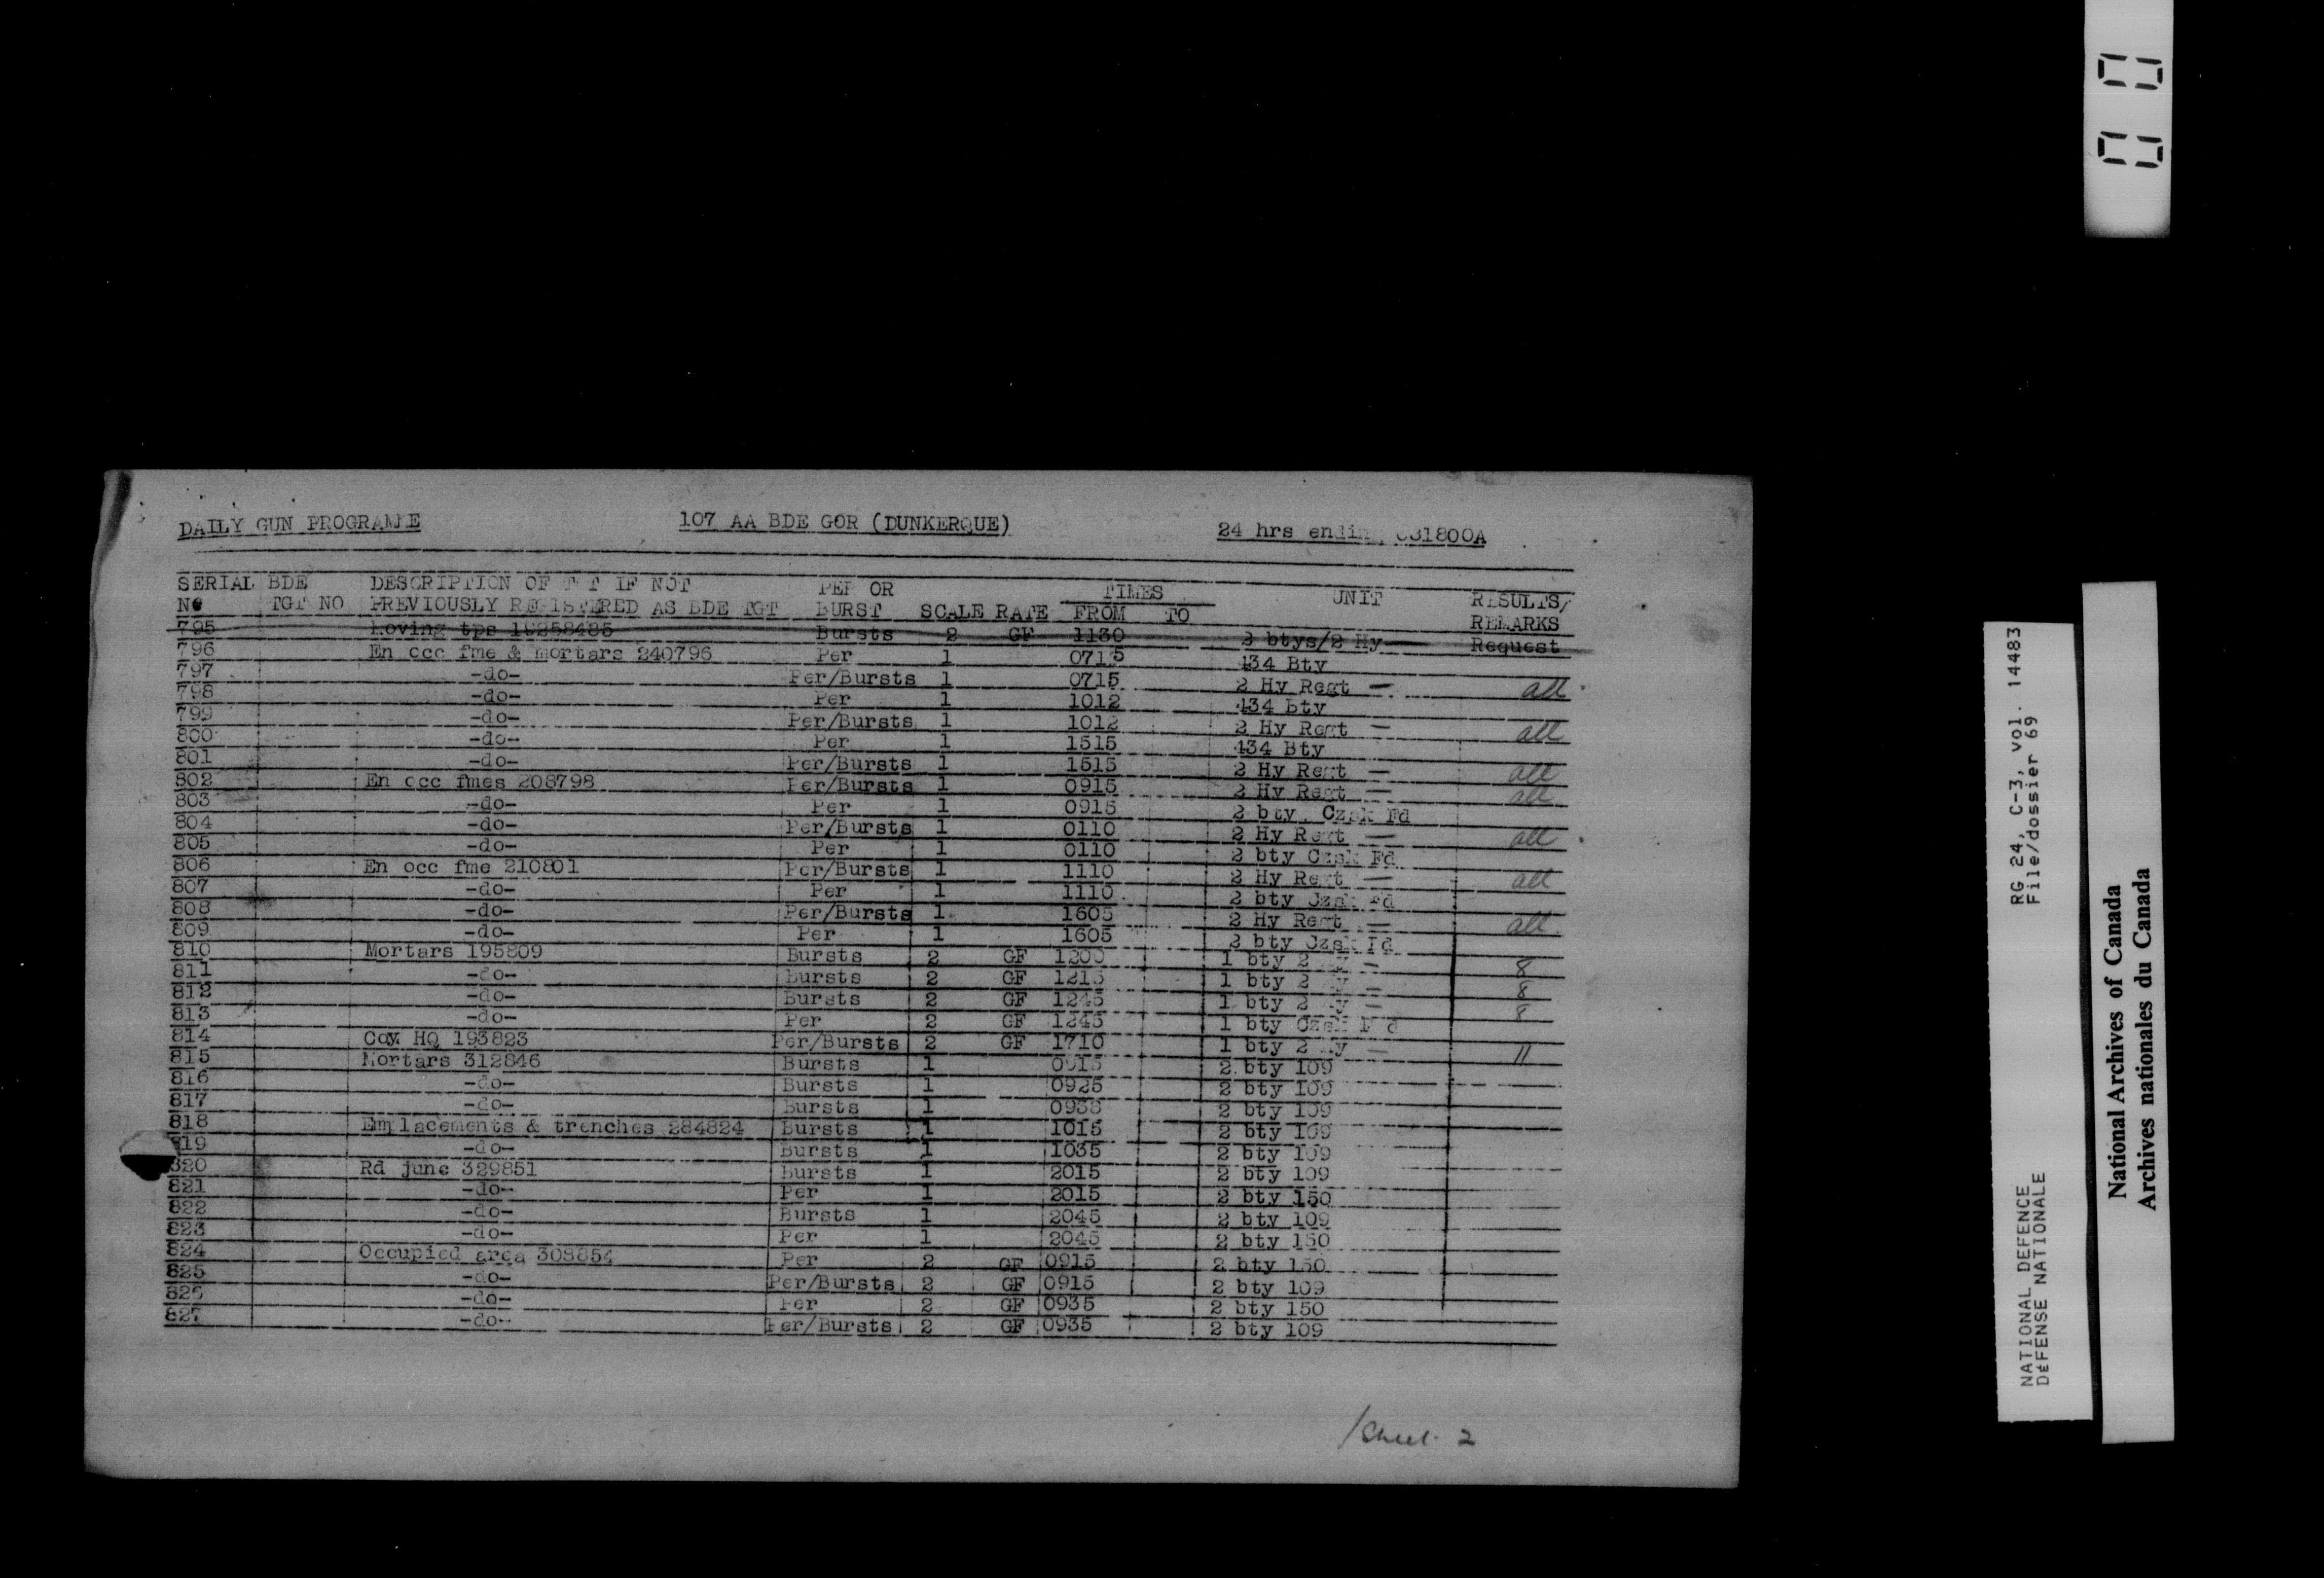 DAILY GUN PROGRAMME 107 AA BDE GOR (DUNKERQUE) 24 hrs ending 031800A
SERIAL BDE DESCRIPTION OF TGT IF NOT PER OR TIMES UNIT RESULTS/
NO TGT NO PREVIOUSLY REGISTERED AS BDE TGT BURST SCALE RATE FROM TO REMARKS
795 Moving tps Bursts 2 GF 1130 2 btys/2 Hy Request
796 En occ fme & mortars 240796 Per 1 0715 434 Bty
797 -do- Per/Bursts 1 0715 2 Hy Regt - all
798 -do- Per 1 1012 434 Bty
799 -do- Per/Bursts 1 1012 2 Hy Regt - all
800 -do- Per 1 1515 434 Bty
801 -do- Per/Bursts 1 1515 2 Hy Regt - all
802 En occ fmes 208798 Per/Bursts 1 0915 2 Hy Regt - all
803 -do- Per 1 0915 2 bty Czsk Fd
804 -do- Per/Bursts 1 0110 2 Hy Regt - all
805 -do- Per 1 0110 2 bty Czsk Fd
806 En occ fme 210801 Per/Bursts 1 1110 2 Hy Regt - all
807 -do- Per 1 1110 2 bty Czsk Fd
808 -do- Per/Bursts 1 1605 2 Hy Regt - all
809 -do- Per 1 1605 2 bty Czsk Fd
810 Mortars 195809 Bursts 2 GF 1200 1 bty 2 Hy - 8
811 -do- Bursts 2 GF 1215 1 bty 2 Hy - 8
812 -do- Bursts 2 GF 1245 1 bty 2 Hy - 8
813 -do- Per 2 GF 1245 1 bty Czsk Fd
814 Coy HQ 193823 Per/Bursts 2 GF 1710 1 bty 2 Hy - 11
815 Mortars 312846 Bursts 1 0915 2 bty 109
816 -do- Bursts 1 0925 2 bty 109
817 -do- Bursts 1 0938 2 bty 109
818 Emplacements & trenches 284824 Bursts 1 1015 2 bty 109
819 -do- Bursts 1 1035 2 bty 109
820 Rd junc 329851 Bursts 1 2015 2 bty 109
821 -do- Per 1 2015 2 bty 150
822 -do- Bursts 1 2045 2 bty 109
823 -do- Per 1 2045 2 bty 150
824 Occupied area 308854 Per 2 GF 0915 2 bty 150
825 -do- Per/Bursts 2 GF 0915 2 bty 109
826 -do- Per 2 GF 0935 2 bty 150
827 -do- Per/Bursts 2 GF 0935 2 bty 109
/Sheet 2
NATIONAL DEFENCE RG 24, C-3, vol. 14483
DéFENSE NATIONALE File/dossier 69
National Archives of Canada
Archives nationales du Canada